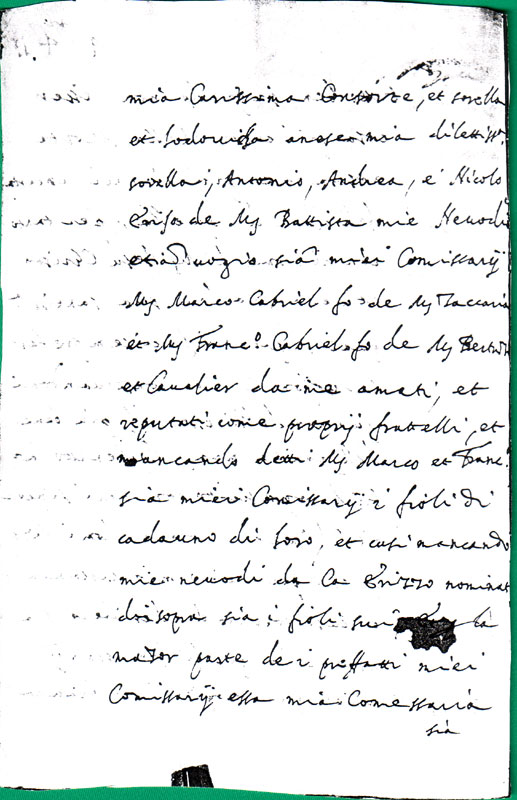 mia Carissima Consorte, et sorella
et Lodovica anesea mia dilettiss.
sorella, Antonio, Andrea, e Nicolo
Erizo de Mr Battista mie Nevodi
et uogio sia miei Comissarij
Mr Marco Cabriel fo de Mr Zaccaria
et Mr Franc.o Cabriel fo de Mr
et Cavalier da me amati, et
reputati come proprij frattelli, et
mancando detti Mr Marco et Franc.o
sia miei Comissarij i fioli di
cadauno di loro, et cusi mancando
mie nevodi da Ca Erizzo nominat
di sopra sia i fioli sui la
mazor parte de i preffatti miei
Comissarij essa mia Comessaria
sia